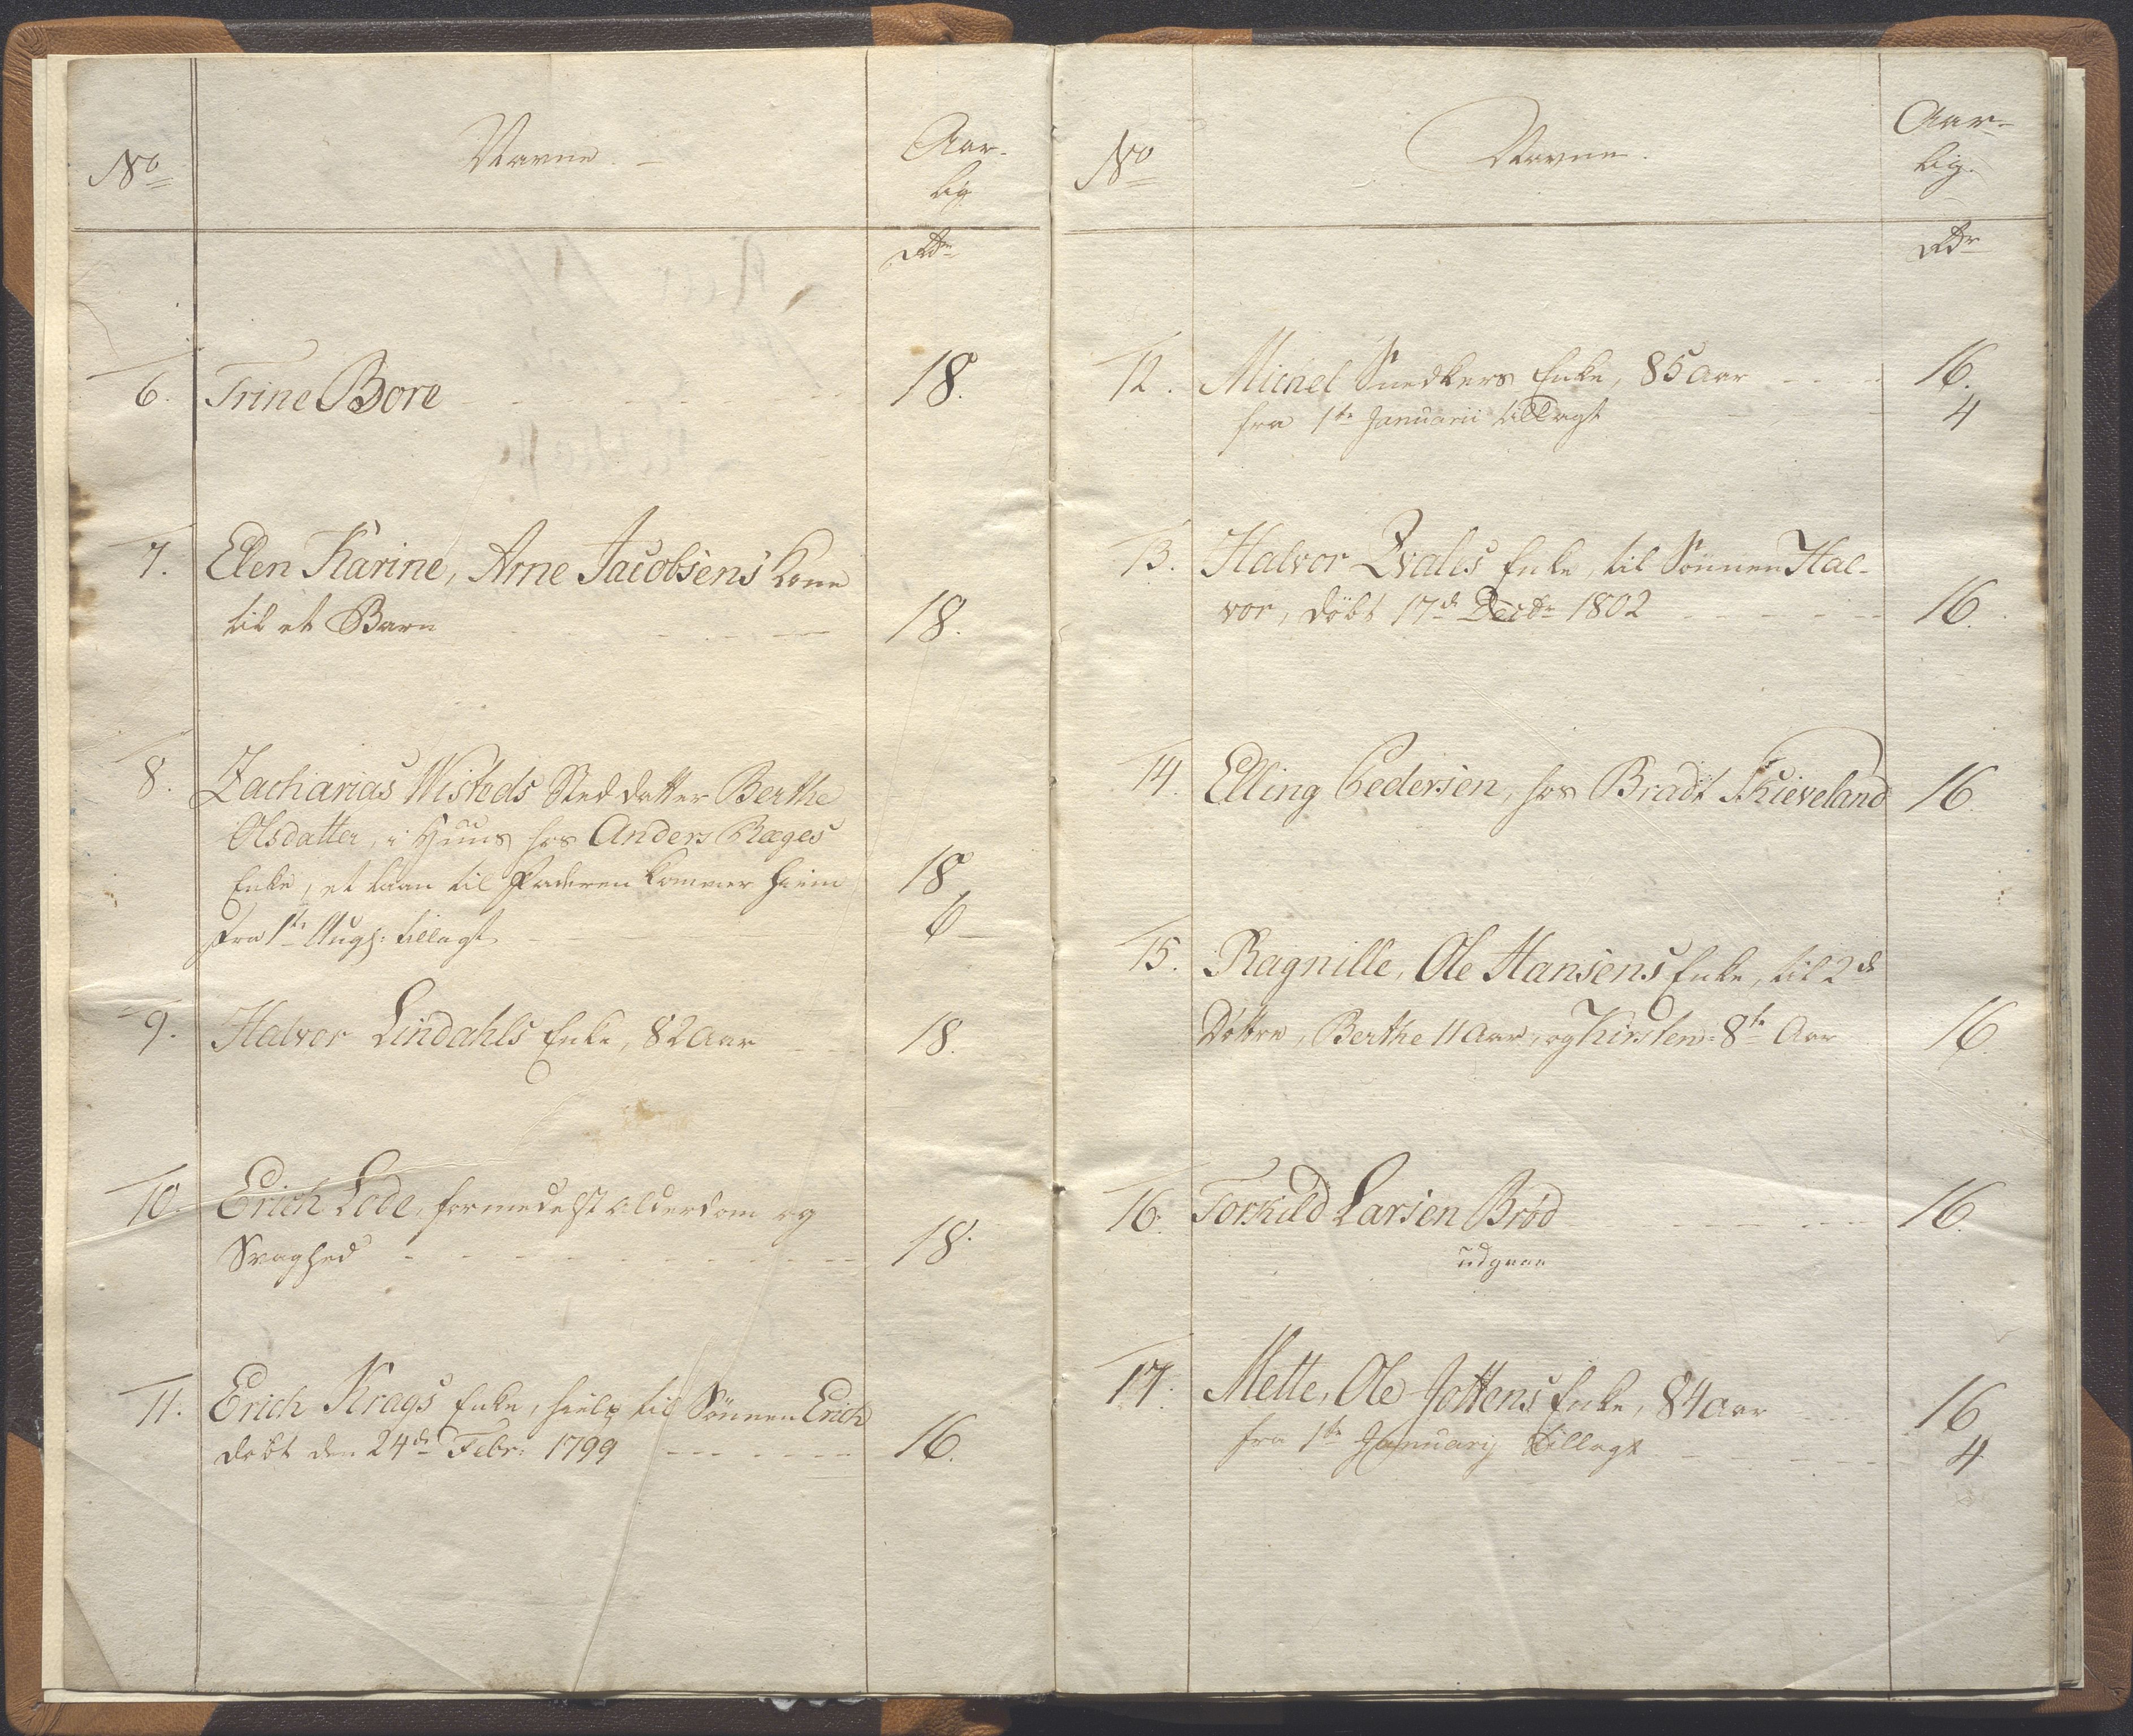 No
Navne.
Aar-
lig
Rdr
6. Trine Bore 18.
7. Elen Karine, Arne Jacobsens Kone
til et Barn 18.
8. Zacharias Wisteds Sted datter Berthe
Olsdatter, i Huus hos Anders Ræges
Enke, et Laan til Faderen kommer hiem 18
fra 1te Augs: tillagt 6
9. Halvor Lindahls Enke, 82 Aar 18.
10. Erich Lode, formedelst Alderdom og
Svaghed 18.
11. Erich Krags Enke, hielp til Sönnen Erich
döbt den 24de Febr: 1799 16.
No
Navne.
Aar-
lig.
Rdr
12. Michel Snedkers Enke, 85 Aar 16.
fra 1te Januarii tillagt 4
13. Halvor Qvales Enke, til Sönnen Hal-
vor, döbt 17de Decbr 1802 16.
14. Elling Pedersen, hos Bradt Skieveland 16.
15. Ragnille, Ole Hansens Enke, til 2de
Döttre, Berthe 11 Aar, og Kirsten 8te Aar 16.
16. Torkild Larsen Brød 16.
udgaar
17. Mette, Ole Jottens Enke, 84 Aar 16
fra 1te Januarij tillagt 4